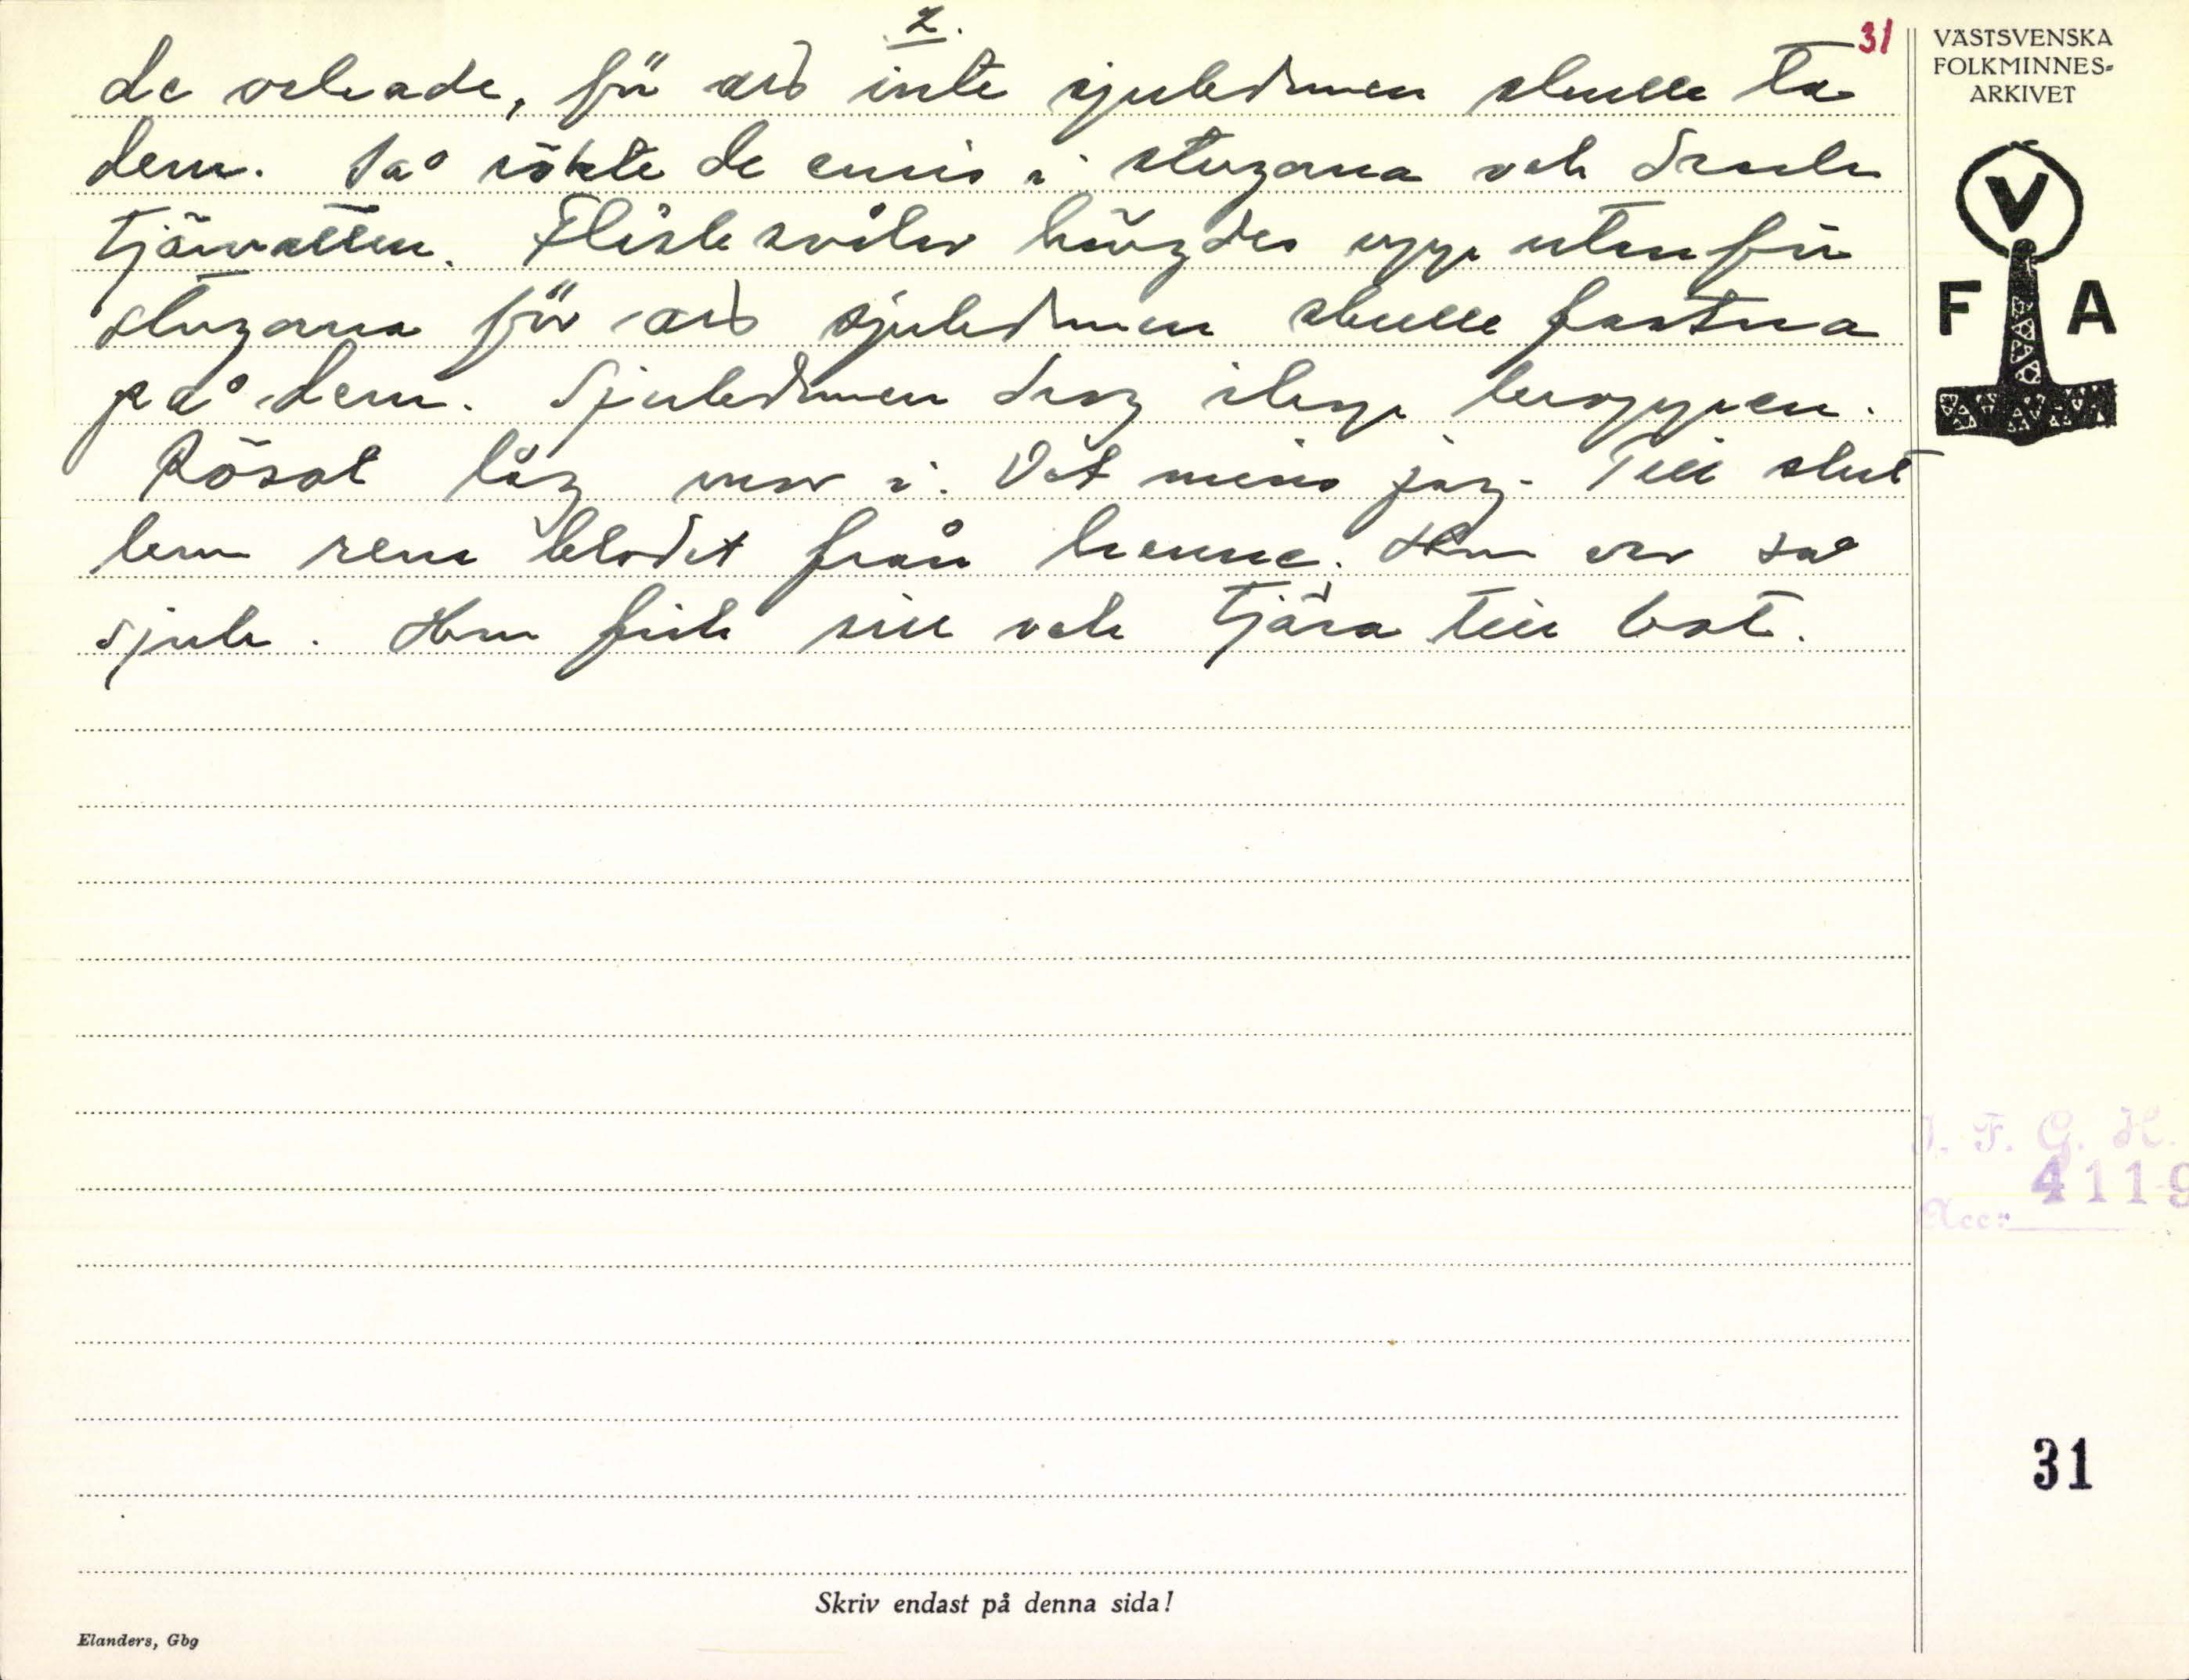 2.
31
de orkade, för att inte sjukdomen skulle ta
dem. Så rökte de enris i stugorna och drack
tjärvatten. Fläsksvålar hängdes upp utanför
stugorna för att sjukdomen skulle fastna
på dem. Sjukdomen drog ihop kroppen.
låg mor i. Det minns jag. Till slut
kom rena blodet från henne. Hon var så
sjuk. Hon fick sill och tjära till bot.
VÄSTSVENSKA
FOLKMINNES-
ARKIVET
V
F A
I. F. G. H.
4119
Acc:
31
Skriv endast på denna sida!
Elanders, Gbg